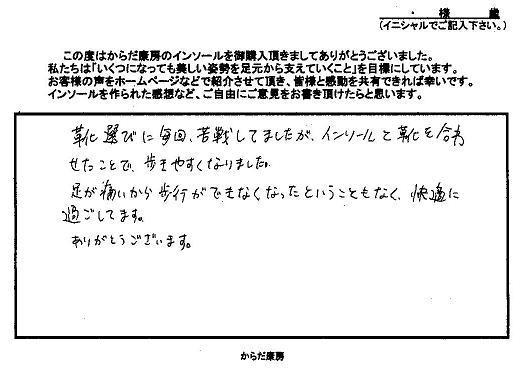 ・　様　　歳
(イニシャルでご記入下さい。)
この度はからだ康房のインソールを御購入頂きましてありがとうございました。
私たちは「いくつになっても美しい姿勢を足元から支えていくこと」を目標にしています。
お客様の声をホームページなどで紹介させて頂き、皆様と感動を共有できれば幸いです。
インソールを作られた感想など、ご自由にご意見をお書き頂けたらと思います。
靴選びに毎回、苦戦してましたが、インソールと靴を合わ
せたことで、歩きやすくなりました。
足が痛いから歩行ができなくなったということもなく、快適に
過ごしてます。
ありがとうございます。
からだ康房